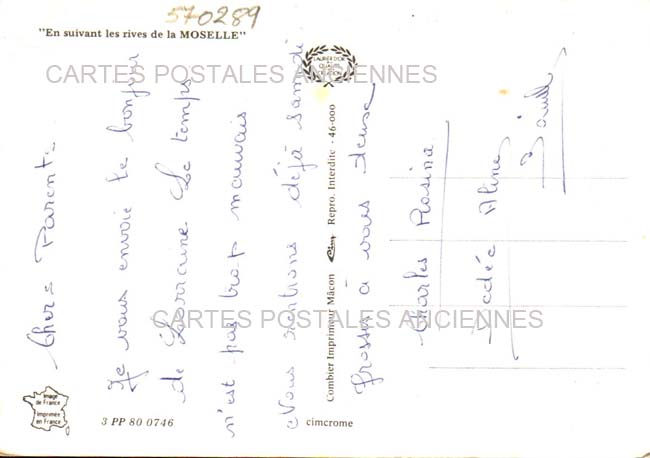 570289
"En suivant les rives de la MOSELLE"
LAURIER D'OR
CARTES POSTALES ANCIENNES
Chers Parents
Je vous envoie le bonjour
de Lorraine Le temps
n'est pas trop mauvais
Nous rentrons déjà samedi
Grosses à vous deux
Charles Rosine
Aline
CARTES POSTALES ANCIENNES
Combier Imprimeur Mâcon Cim Repro. Interdite - 46-000
Image
de France
Imprimée
en France
3 PP 80 0746
cimcrome